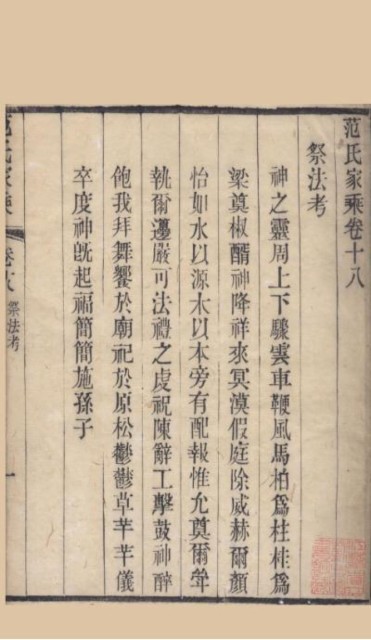 范氏家乘卷十八
祭法考
神之靈周上下驟雲車鞭風馬柏爲柱桂爲
梁奠椒醑神降祥來冥漠假庭除威赫爾顔
怡如水以源木以本旁有配報惟允奠爾斝
執爾籩嚴可法禮之虔祝陳辭工擊鼓神醉
飽我拜舞饗於廟祀於原松鬱鬱草芊芊儀
卒度神旣起福簡簡施孫子
范氏家乘
卷十八
祭法考
一